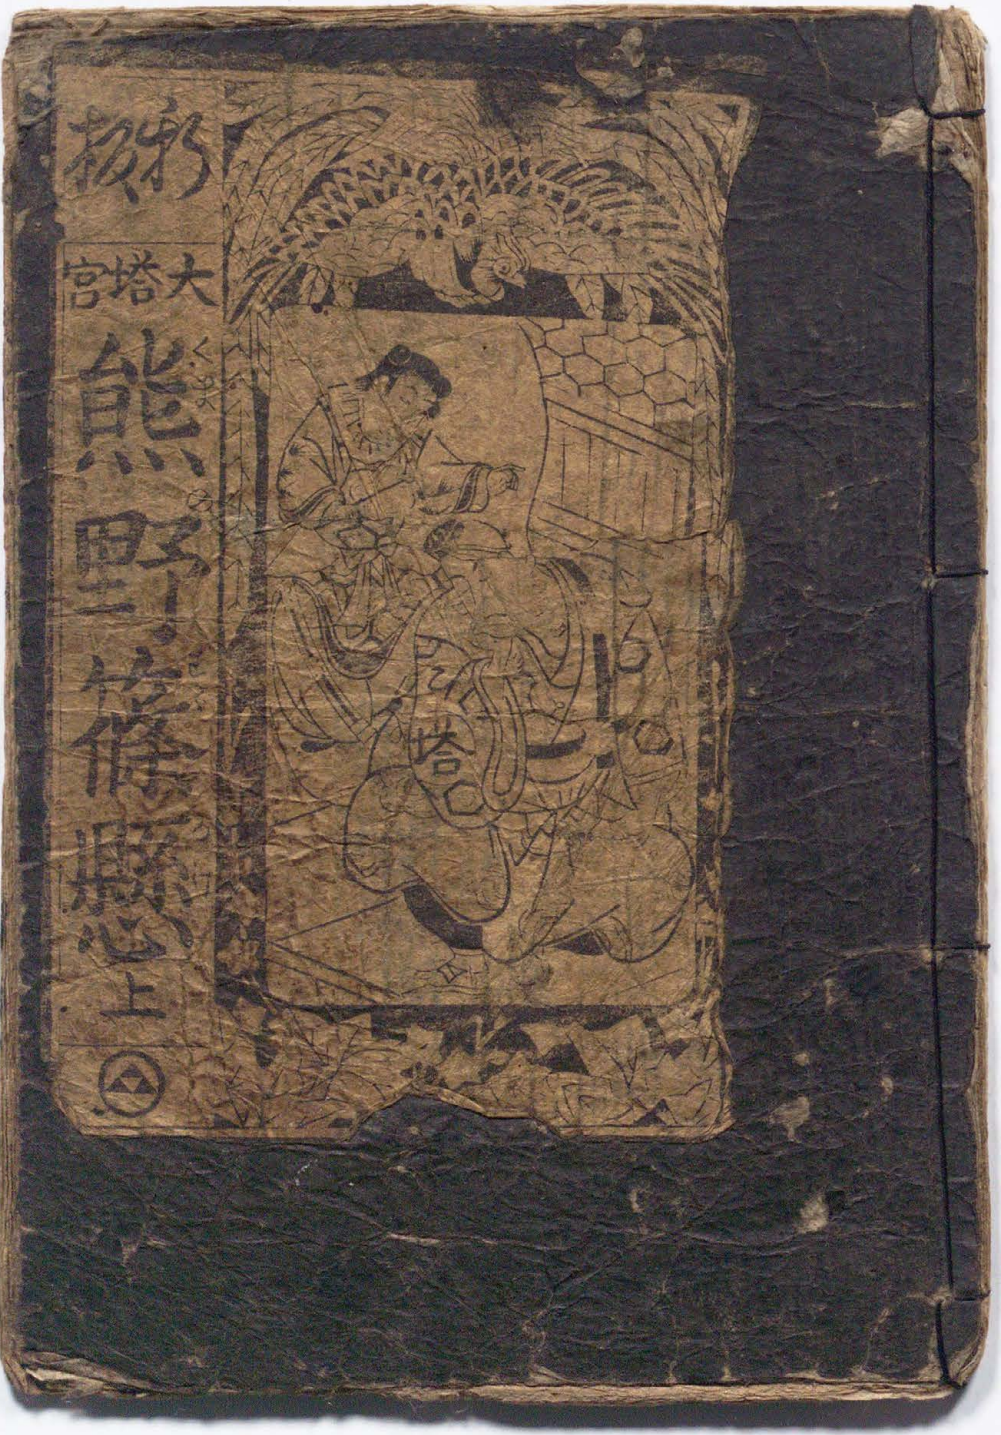 新板
大塔宮
熊野篠懸 上
塔